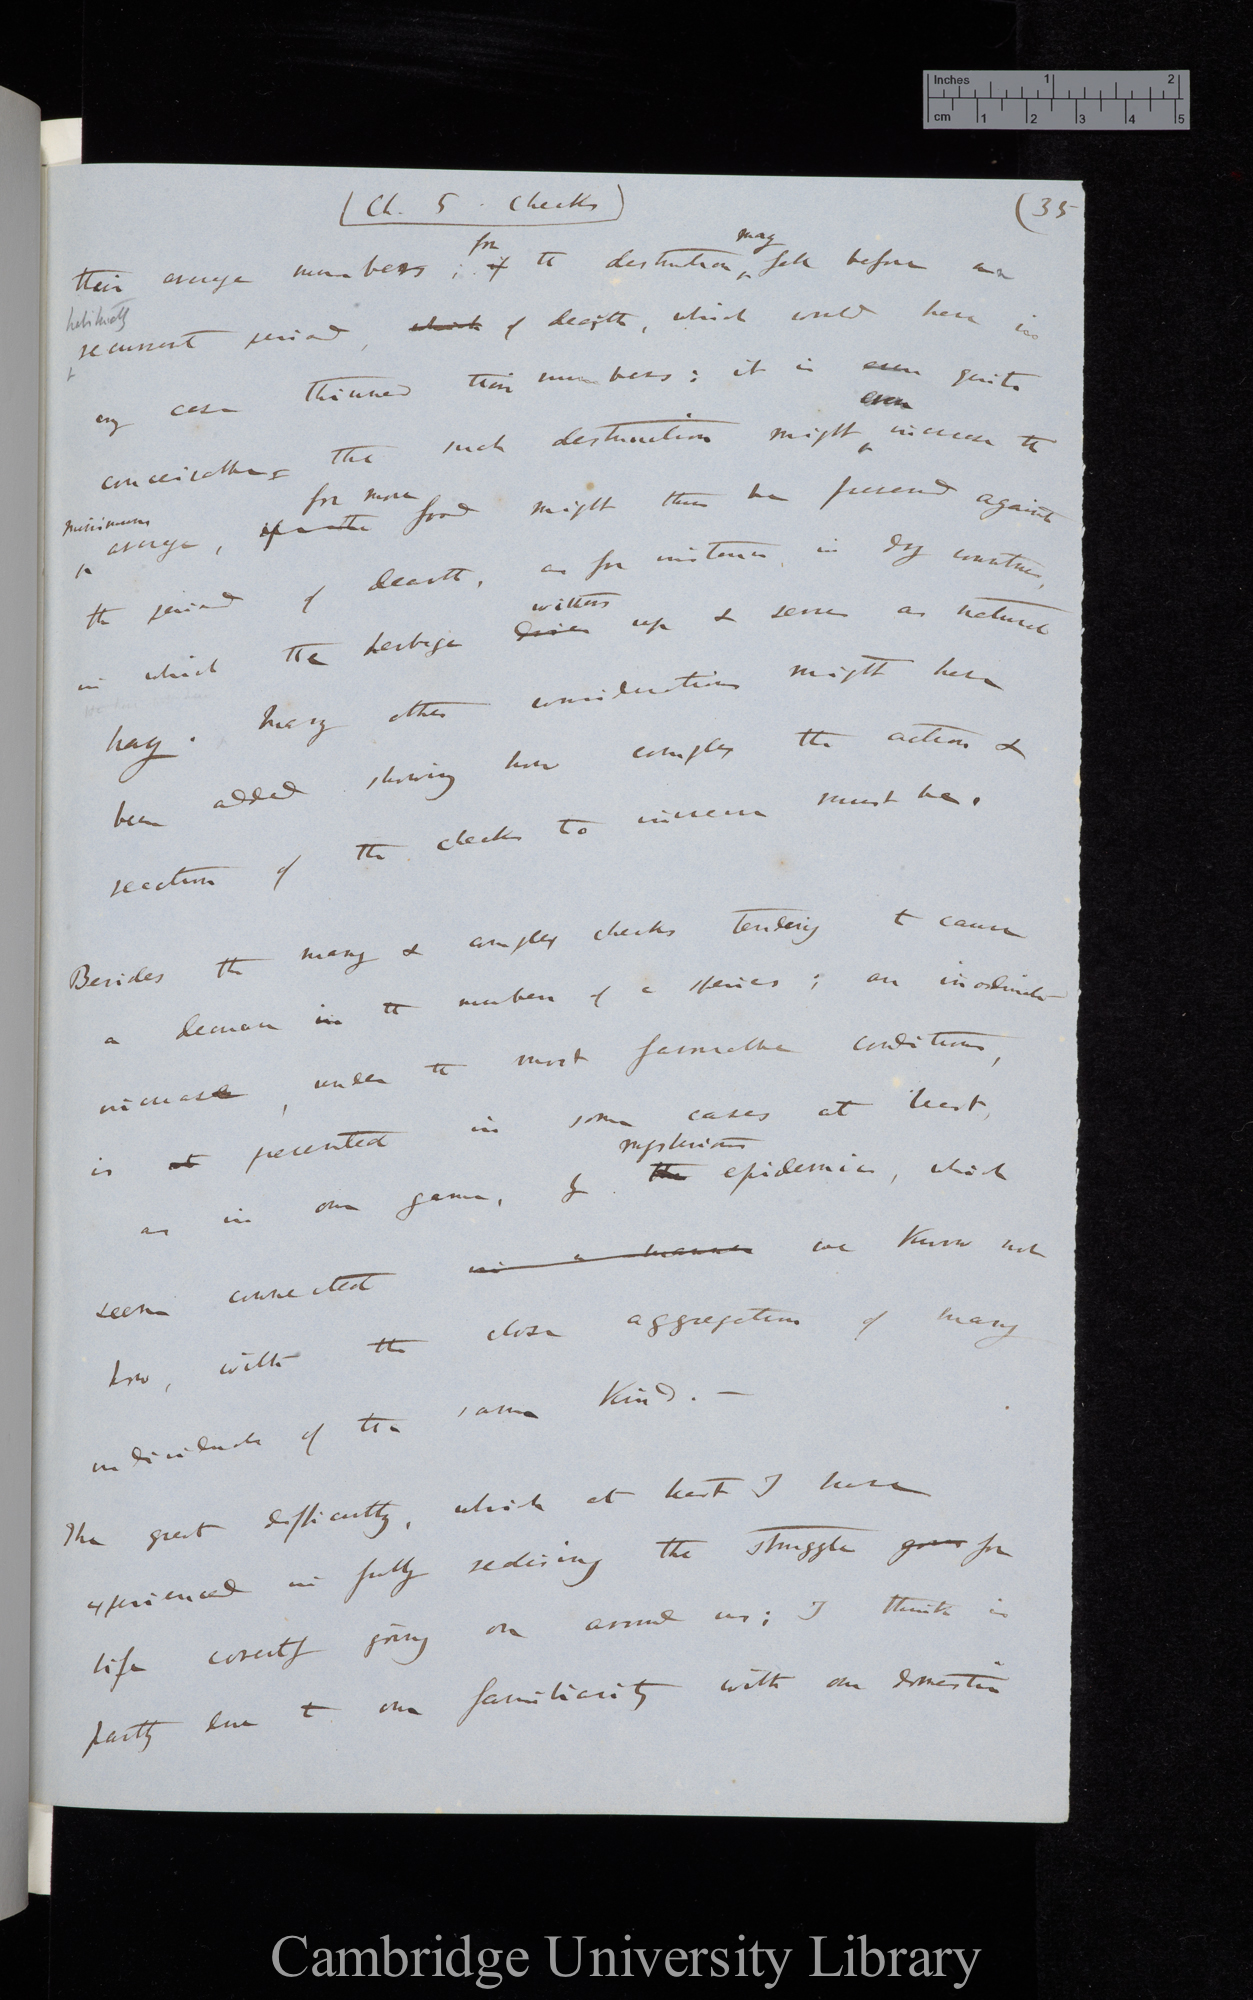 Inches 1 2
cm 1 2 3 4 5
(Ch. 5. Checks)
(35
for may
their average numbers; if the destruction fall before a
habitually
recurrent period, which of dearth, which would have in
any case thinned their numbers; it is even quite
even
conceivable, that such destruction might increase the
minimum for more
average, food might thus be preserved against
the period of dearth, as for instance, in dry countries,
withers
in which the herbage dries up & serves as natural
hay. Many other considerations might have
been added showing how complex the action &
reaction of the checks to increase must be.
Besides the many & complex checks tending to cause
a decrease in the numbers of a species; an inordinate
increase, under the most favourable conditions,
is prevented in some cases at least,
mysterious
as in our game, by the epidemics, which
seem connected in a manner we know not
how, with the close aggregation of many
individuals of the same kind. —
The great difficulty, which at least I have
experienced in fully realising the struggle for
life constantly going on around us; I think is
partly due to our familiarity with our domestic
Cambridge University Library